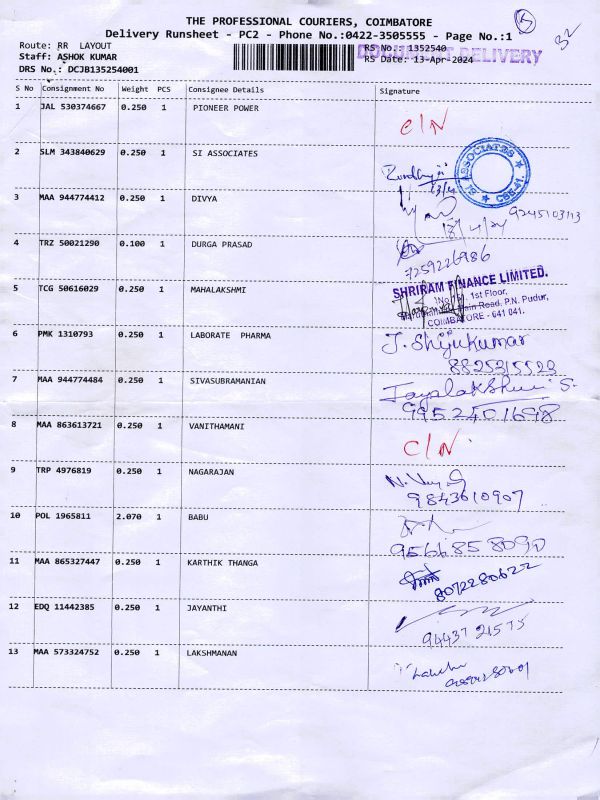 THE PROFESSIONAL COURIERS, COIMBATORE
Delivery Runsheet - PC2 - Phone No.:0422-3505555 - Page No.:1
5
32
DOCUMENT DELIVERY
Route: RR LAYOUT
RS No.: 1352540
Staff: ASHOK KUMAR
RS Date: 13-Apr-2024
DRS No.: DCJB135254001
S No Consignment No Weight PCS Consignee Details Signature
1 JAL 530374667 0.250 1 PIONEER POWER
C/N
2 SLM 343840629 0.250 1 SI ASSOCIATES
SI ASSOCIATES ★ CBE-41. ★
3 MAA 944774412 0.250 1 DIVYA
13/4/24 9245103113
4 TRZ 50021290 0.100 1 DURGA PRASAD
7259226986
5 TCG 50616029 0.250 1 MAHALAKSHMI
SHRIRAM FINANCE LIMITED.
1st Floor,
Main Road, P.N. Pudur,
COIMBATORE - 641 041.
6 PMK 1310793 0.250 1 LABORATE PHARMA
J. Shijukumar
8825315523
7 MAA 944774484 0.250 1 SIVASUBRAMANIAN
Jayalakshmi S.
9952401698
8 MAA 863613721 0.250 1 VANITHAMANI
C/N.
9 TRP 4976819 0.250 1 NAGARAJAN
9843610907
10 POL 1965811 2.070 1 BABU
9566858090
11 MAA 865327447 0.250 1 KARTHIK THANGA
8072280622
12 EDQ 11442385 0.250 1 JAYANTHI
9443721575
13 MAA 573324752 0.250 1 LAKSHMANAN